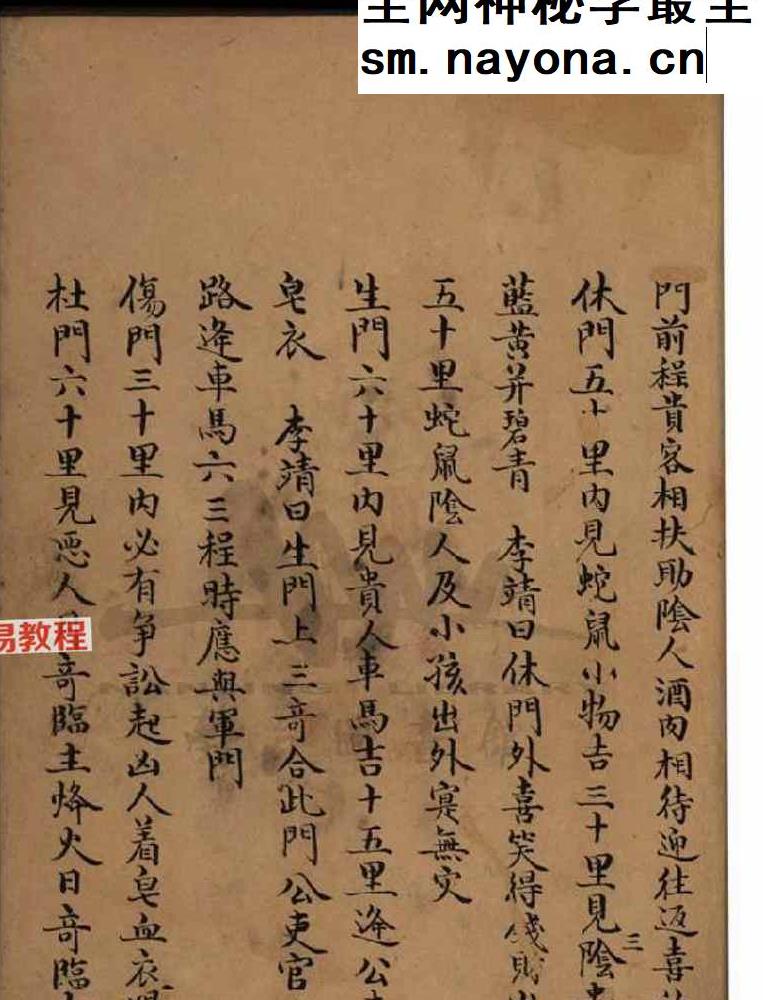 全网神秘学最全
sm.nayona.cn
門前程貴客相扶助陰人酒肉相待迎往返喜
休門五十里内見蛇鼠小物吉三十里見陰
藍黄并碧青 李靖曰休門外喜笑得錢財
五十里蛇鼠陰人及小孩出外寔無灾
生門六十里内見貴人車馬吉十五里逢公
皂衣 李靖曰生門上三竒合此門公吏官
路逢車馬六三程時應與軍門
傷門三十里内必有争訟起凶人着皂血衣
杜門六十里見恶人竒臨主烽火日竒臨
三
易教程